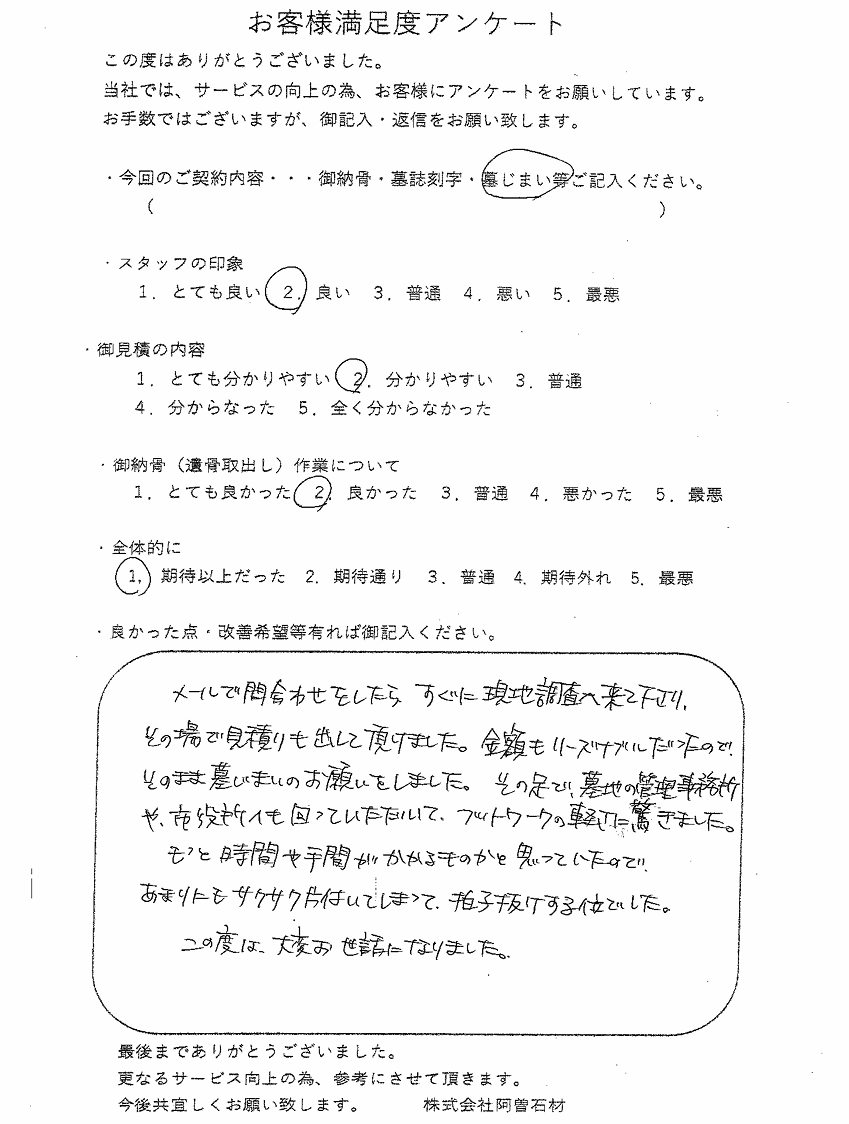 お客様満足度アンケート
この度はありがとうございました。
当社では、サービスの向上の為、お客様にアンケートをお願いしています。
お手数ではございますが、御記入・返信をお願い致します。
・今回のご契約内容・・・御納骨・墓誌刻字・墓じまい等ご記入ください。
(                    )
・スタッフの印象
1. とても良い 2. 良い 3. 普通 4. 悪い 5. 最悪
・御見積の内容
1. とても分かりやすい 2. 分かりやすい 3. 普通
4. 分からなった 5. 全く分からなかった
・御納骨（遺骨取出し）作業について
1. とても良かった 2. 良かった 3. 普通 4. 悪かった 5. 最悪
・全体的に
1. 期待以上だった 2. 期待通り 3. 普通 4. 期待外れ 5. 最悪
・良かった点・改善希望等有れば御記入ください。
メールで問合わせをしたら すぐに現地調査へ来て下さり、
その場で見積りも出して頂けました。金額もリーズナブルだったので、
そのまま墓じまいのお願いをしました。その足で、墓地の管理事務所
や、市役所へも回っていただいて、フットワークの軽さに驚きました。
もっと時間や手間がかかるものかと思っていたので、
あまりにもサクサク片付いてしまって、拍子抜けする位でした。
この度は、大変お世話になりました。
最後までありがとうございました。
更なるサービス向上の為、参考にさせて頂きます。
今後共宜しくお願い致します。 株式会社阿曽石材